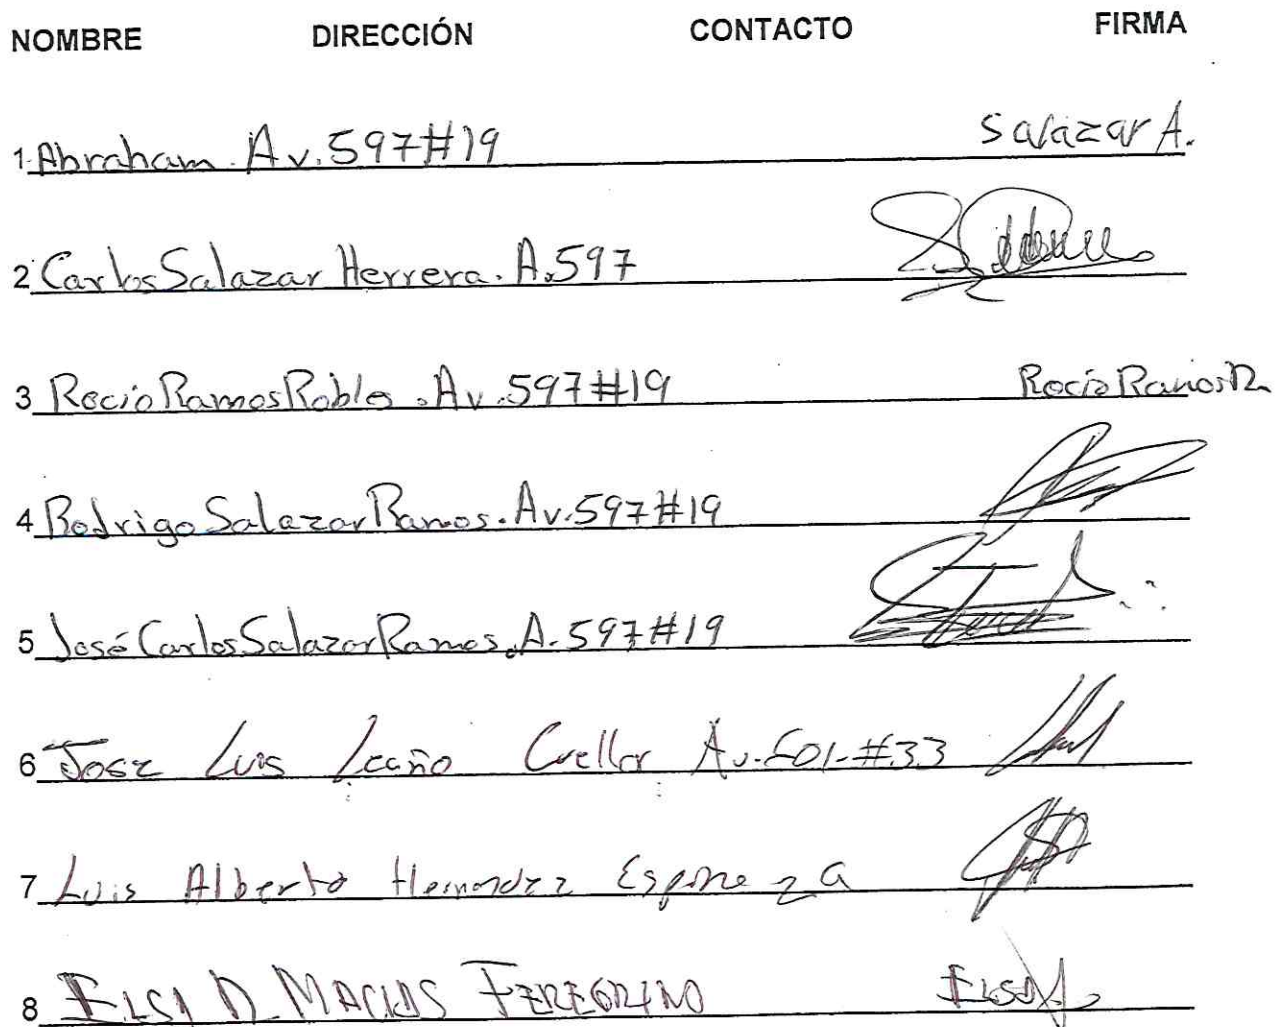 NOMBRE DIRECCIÓN CONTACTO FIRMA
1. Abraham. Av. 597#19 Salazar A.
2 Carlos Salazar Herrera. A. 597
3 Rocío Ramos Robles. Av. 597#19 Rocío Ramos R
4 Rodrigo Salazar Ramos. Av. 597#19
5 José Carlos Salazar Ramos. A. 597#19
6 Jose Luis Leaño Cuellar Av. 601-#33
7 Luis Alberto Hernandez Espinoza
8 ELSA D MACIAS FEREGRINO ELSA